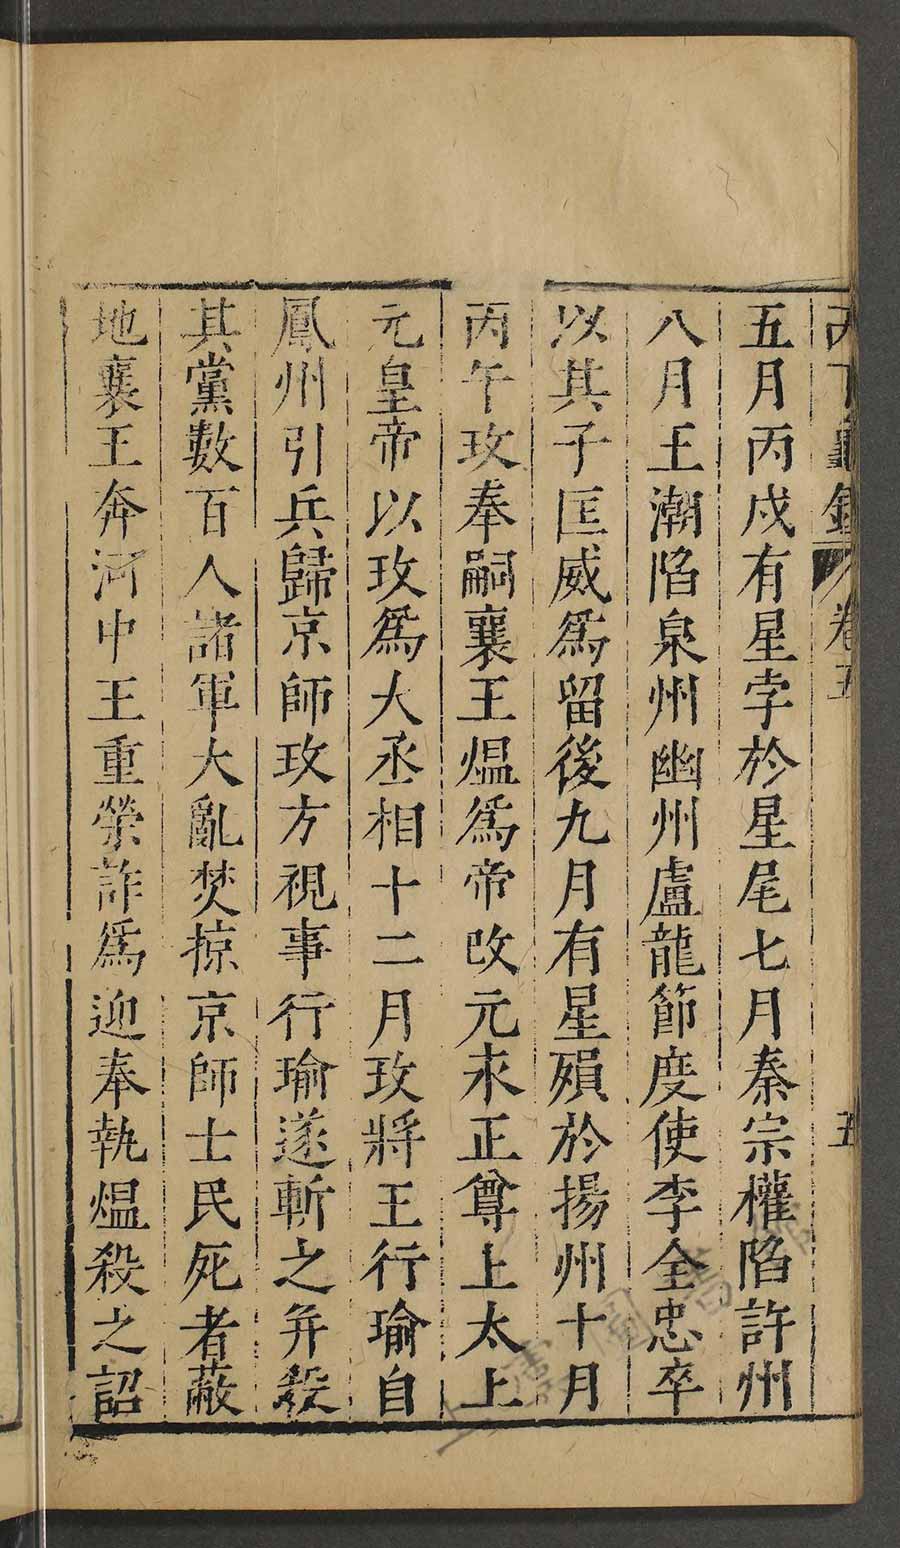 五月丙戍有星孛於星尾七月秦宗權陷許州
八月王潮陷泉州幽州盧龍節度使李全忠卒
以其子匡威爲留後九月有星殞於揚州十月
丙午玫奉嗣襄王熅爲帝改元永正尊上太上
元皇帝以玫爲大丞相十二月玫將王行瑜自
鳳州引兵歸京師玫方視事行瑜遂斬之并殺
其黨數百人諸軍大亂焚掠京師士民死者蔽
地襄王奔河中王重榮詐爲迎奉執熅殺之詔